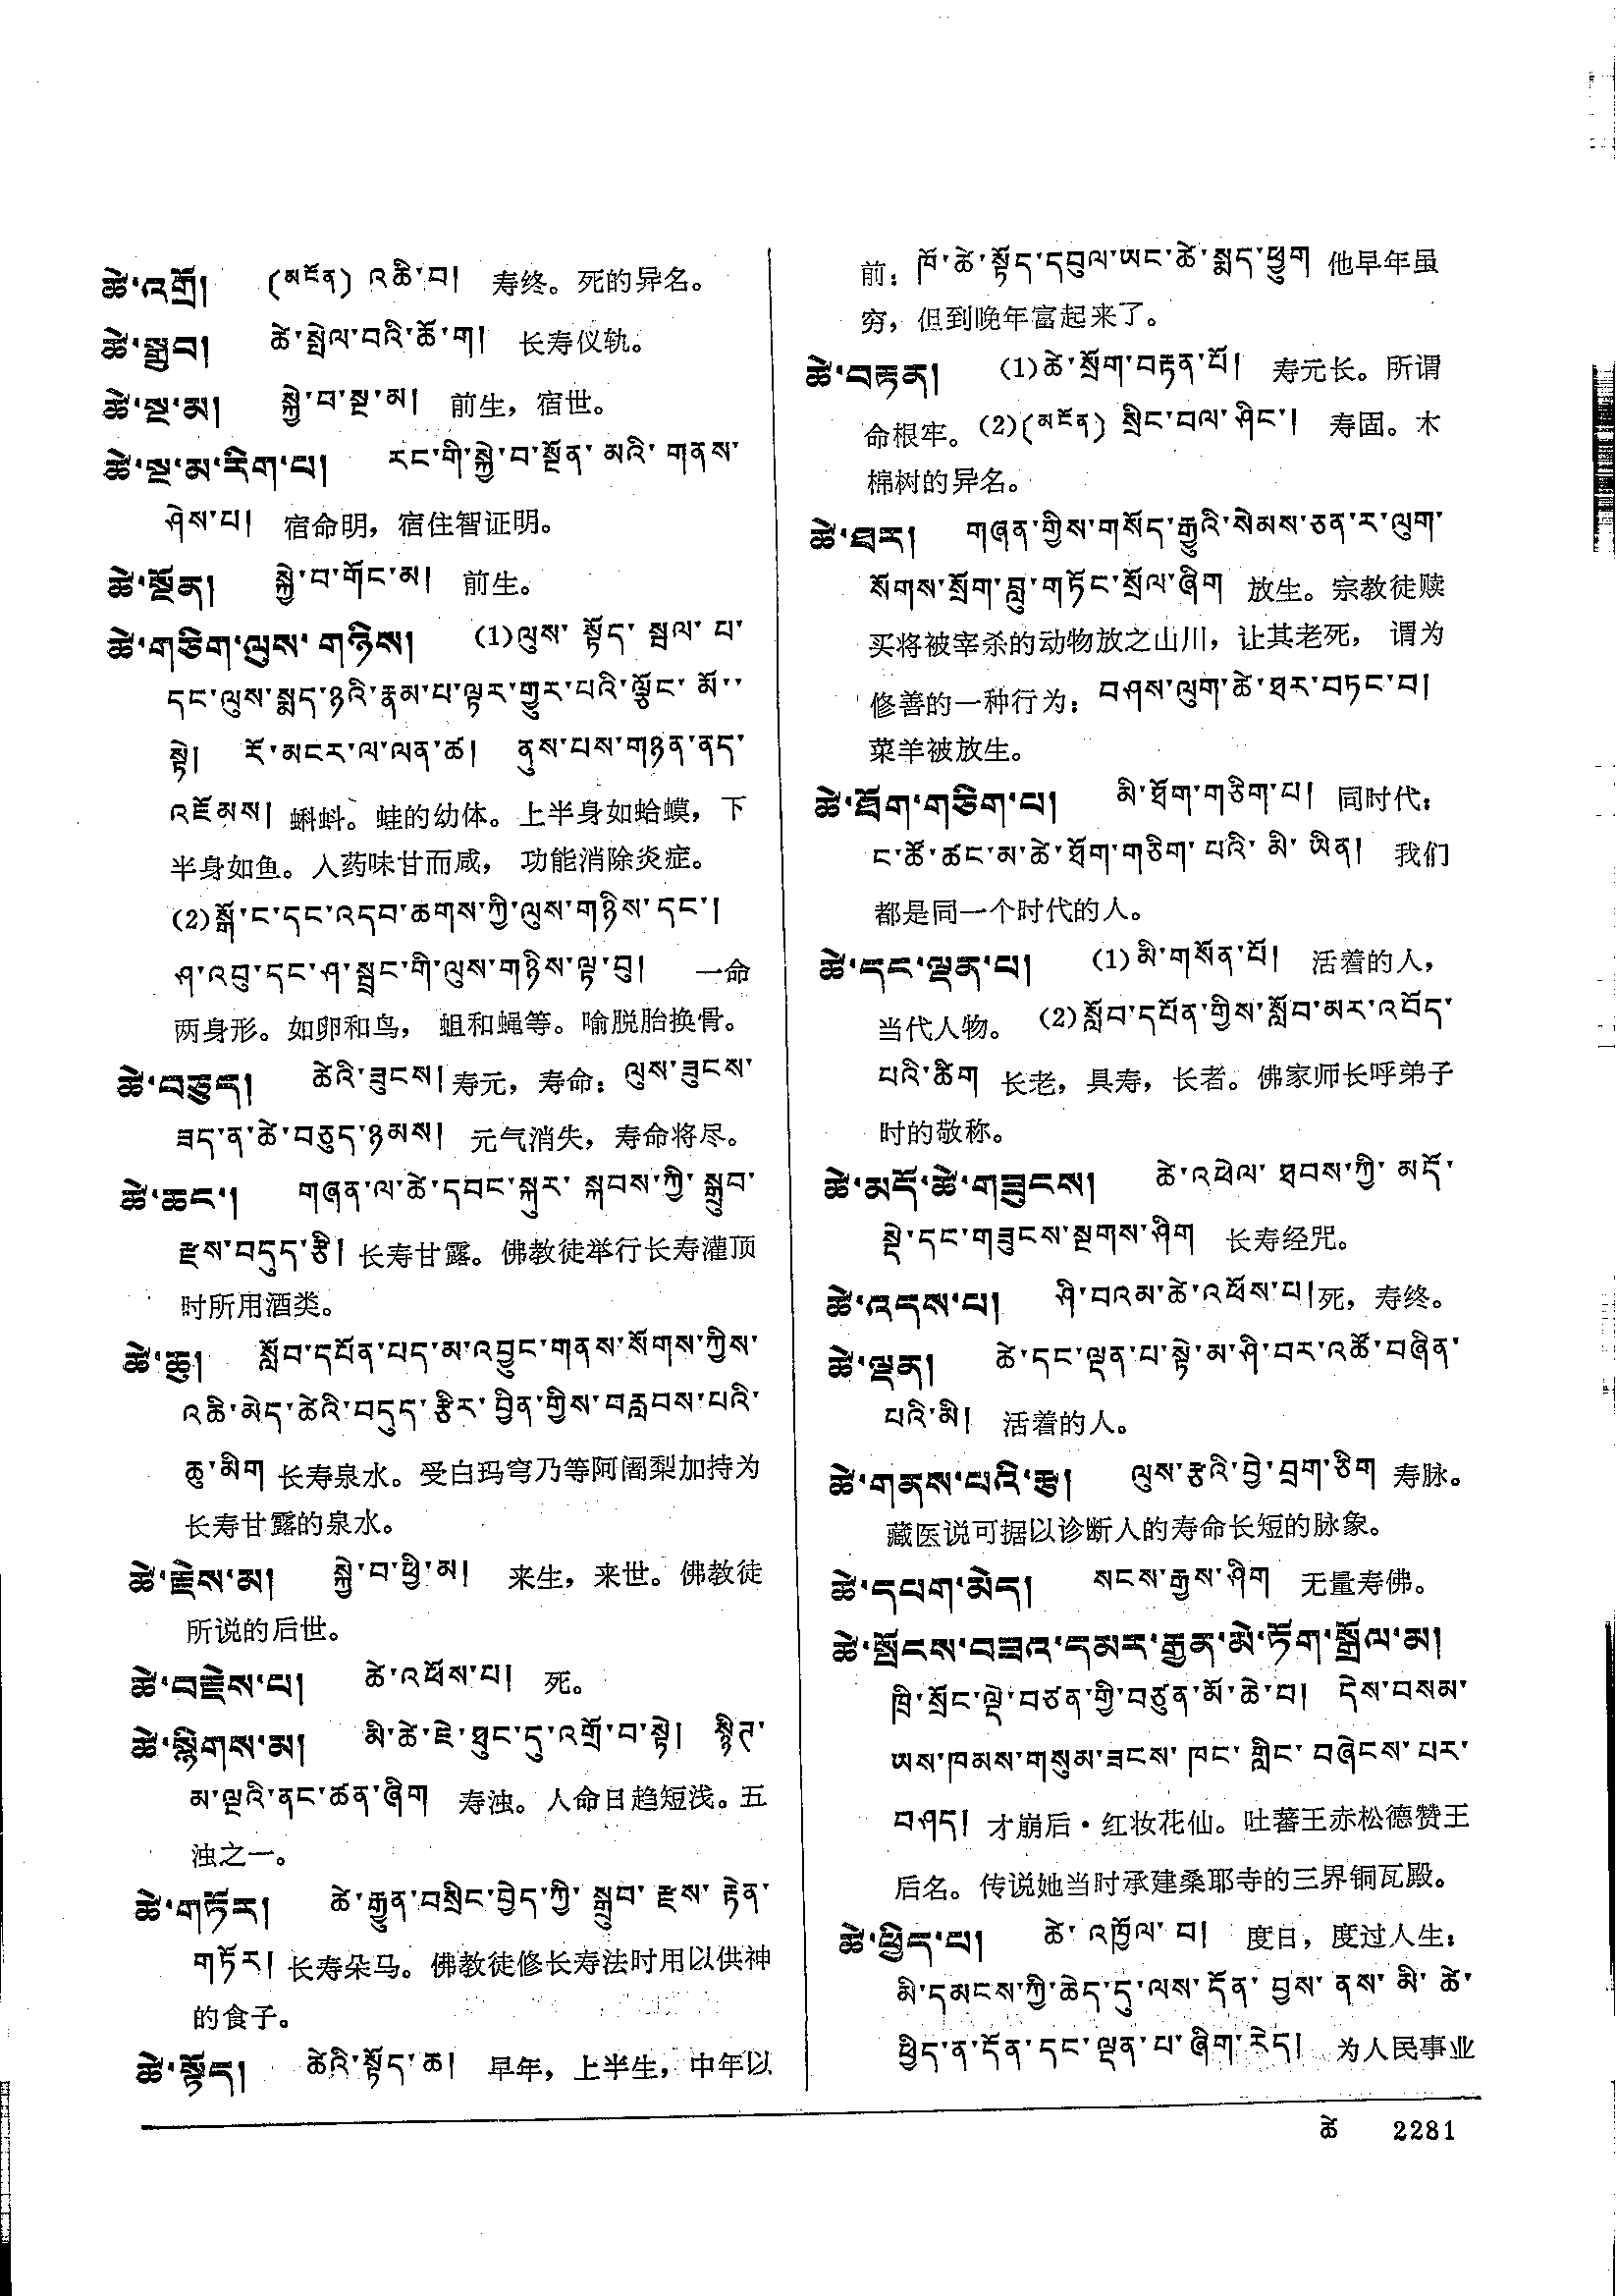 ཚེ་འགྲོ། (མངོན) འཆི་བ། 寿终。死的异名。
ཚེ་སྒྲུབ། ཚེ་སྤེལ་བའི་ཆོ་ག། 长寿仪轨。
ཚེ་སྔ་མ། སྐྱེ་བ་སྔ་མ། 前生，宿世。
ཚེ་སྔ་མ་རིག་པ། རང་གི་སྐྱེ་བ་སྔོན་མའི་གནས་
ཤེས་པ། 宿命明，宿住智证明。
ཚེ་སྔོན། སྐྱེ་བ་གོང་མ། 前生。
ཚེ་གཅིག་ལུས་གཉིས། (1)ལུས་སྟོད་སྦལ་པ་
དང་ལུས་སྨད་ཉའི་རྣམ་པ་ལྟར་གྱུར་པའི་ལྕོང་མོ་་
སྟེ། རོ་མངར་ལ་ལན་ཚ། ནུས་པས་གཉན་ནད་
འཇོམས། 蝌蚪。蛙的幼体。上半身如蛤蟆，下
半身如鱼。入药味甘而咸，功能消除炎症。
(2)སྒོ་ང་དང་འདབ་ཆགས་ཀྱི་ལུས་གཉིས་དང་།
ཤ་འབུ་དང་ཤ་སྦྲང་གི་ལུས་གཉིས་ལྟ་བུ། 一命
两身形。如卵和鸟，蛆和蝇等。喻脱胎换骨。
ཚེ་བཅུད། ཚེའི་ཟུངས། 寿元，寿命：ལུས་ཟུངས་
ཟད་ན་ཚེ་བཅུད་ཉམས། 元气消失，寿命将尽。
ཚེ་ཆང་། གཞན་ལ་ཚེ་དབང་སྐུར་སྐབས་ཀྱི་སྒྲུབ་
རྫས་བདུད་རྩི། 长寿甘露。佛教徒举行长寿灌顶
时所用酒类。
ཚེ་ཆུ། སློབ་དཔོན་པད་མ་འབྱུང་གནས་སོགས་ཀྱིས་
འཆི་མེད་ཚེའི་བདུད་རྩིར་བྱིན་གྱིས་བརླབས་པའི་
ཆུ་མིག 长寿泉水。受白玛穹乃等阿阇梨加持为
长寿甘露的泉水。
ཚེ་རྗེས་མ། སྐྱེ་བ་ཕྱི་མ། 来生，来世。佛教徒
所说的后世。
ཚེ་བརྗེས་པ། ཚེ་འཕོས་པ། 死。
ཚེ་སྙིགས་མ། མི་ཚེ་ཇེ་ཐུང་དུ་འགྲོ་བ་སྟེ། སྙིག་
མ་ལྔའི་ནང་ཚན་ཞིག 寿浊。人命日趋短浅。五
浊之一。
ཚེ་གཏོར། ཚེ་རྒྱུན་བསྲིང་བྱེད་ཀྱི་སྒྲུབ་རྫས་རྟེན་
གཏོར། 长寿朵马。佛教徒修长寿法时用以供神
的食子。
ཚེ་སྟོད། ཚེའི་སྟོད་ཆ། 早年，上半生，中年以
前：ཁོ་ཚེ་སྟོད་དབུལ་ཡང་ཚེ་སྨད་ཕྱུག 他早年虽
穷，但到晚年富起来了。
ཚེ་བརྟན། (1)ཚེ་སྲོག་བརྟན་པོ། 寿元长。所谓
命根牢。(2)(མངོན) སྲིང་བལ་ཤིང་། 寿固。木
棉树的异名。
ཚེ་ཐར། གཞན་གྱིས་གསོད་རྒྱུའི་སེམས་ཅན་ར་ལུག་
སོགས་སྲོག་བླུ་གཏོང་སྲོལ་ཞིག 放生。宗教徒赎
买将被宰杀的动物放之山川，让其老死，谓为
修善的一种行为：བཤས་ལུག་ཚེ་ཐར་བཏང་བ།
菜羊被放生。
ཚེ་ཐོག་གཅིག་པ། མི་ཐོག་གཅིག་པ། 同时代：
ང་ཚོ་ཚང་མ་ཚེ་ཐོག་གཅིག་པའི་མི་ཡིན། 我们
都是同一个时代的人。
ཚེ་དང་ལྡན་པ། (1)མི་གསོན་པོ། 活着的人，
当代人物。(2)སློབ་དཔོན་གྱིས་སློབ་མར་འབོད་
པའི་ཚིག 长老，具寿，长者。佛家师长呼弟子
时的敬称。
ཚེ་མདོ་ཚེ་གཟུངས། ཚེ་འཕེལ་ཐབས་ཀྱི་མདོ་
སྡེ་དང་གཟུངས་སྔགས་ཤིག 长寿经咒。
ཚེ་འདས་པ། ཤི་བའམ་ཚེ་འཕོས་པ། 死，寿终。
ཚེ་ལྡན། ཚེ་དང་ལྡན་པ་སྟེ་མ་ཤི་བར་འཚོ་བཞིན་
པའི་མི། 活着的人。
ཚེ་གནས་པའི་རྩ། ལུས་རྩའི་བྱེ་བྲག་ཅིག 寿脉。
藏医说可据以诊断人的寿命长短的脉象。
ཚེ་དཔག་མེད། སངས་རྒྱས་ཤིག 无量寿佛。
ཚེ་སྤོངས་བཟའ་དམར་རྒྱན་མེ་ཏོག་སྒྲོལ་མ།
ཁྲི་སྲོང་ལྡེ་བཙན་གྱི་བཙུན་མོ་ཆེ་བ། དེས་བསམ་
ཡས་ཁམས་གསུམ་ཟངས་ཁང་གླིང་བཞེངས་པར་
བཤད། 才崩后·红妆花仙。吐蕃王赤松德赞王
后名。传说她当时承建桑耶寺的三界铜瓦殿。
ཚེ་ཕྱིད་པ། ཚེ་འཁྱོལ་བ། 度日，度过人生：
མི་དམངས་ཀྱི་ཆེད་དུ་ལས་དོན་བྱས་ནས་མི་ཚེ་
ཕྱིད་ན་དོན་དང་ལྡན་པ་ཞིག་རེད། 为人民事业
ཚེ 2281